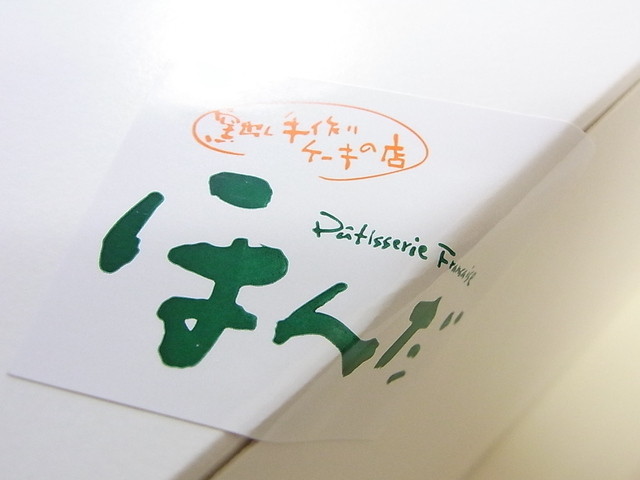 窯出し手作り
ケーキの店
Pâtisserie Française
ほんだ